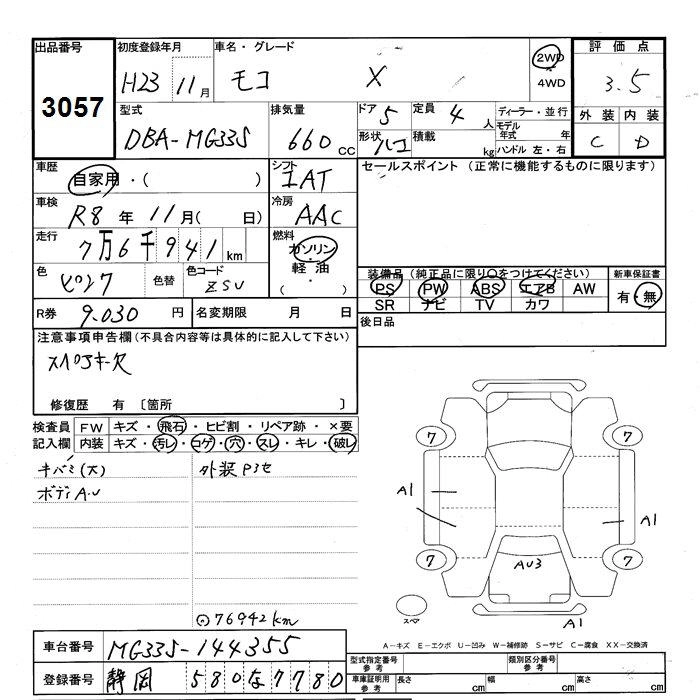 出品番号 3057
初度登録年月 H23 11月
車名・グレード モコ X
2WD 4WD
評価点 3.5
型式 DBA-MG33S
排気量 660 cc
ドア 5 形状 ハコ
定員 4 人 積載 kg
ディーラー・並行
モデル年式 年
ハンドル 左・右
外装 内装
C D
車歴 自家用・( )
シフト IAT
セールスポイント (正常に機能するものに限ります)
車検 R8 年 11月( 日)
冷房 AAC
走行 7万6千941 km
燃料 ガソリン・軽油( )
色 ピンク 色替 色コード ZSU
装備品(純正品に限り○をつけてください)
新車保証書
PS PW ABS エアB AW
SR ナビ TV カワ
有・無
R券 9.030 円 名変期限 月 日
後日品
注意事項申告欄(不具合内容等は具体的に記入して下さい)
スペアキー欠
修復歴 有 〔箇所 〕
検査員記入欄 FW キズ・飛石・ヒビ割・リペア跡・×要
内装 キズ・汚レ・コゲ・穴・スレ・キレ・破レ
キバミ(大) 外装P3セ
ボディA.U
7 7
A1 A1
7 7
AU3
スペア A1
◎76942km
A-キズ E-エクボ U-凹み W-補修跡 S-サビ C-腐食 XX-交換済
車台番号 MG33S-144355
型式指定番号 参考 類別区分番号 参考
登録番号 静岡 580な7780
車庫証明用 参考 長さ cm 幅 cm 高さ cm